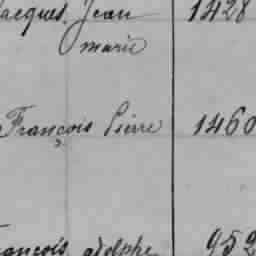 Jacques Jean 1428
marie
François Pierre 1460
François adolphe 952